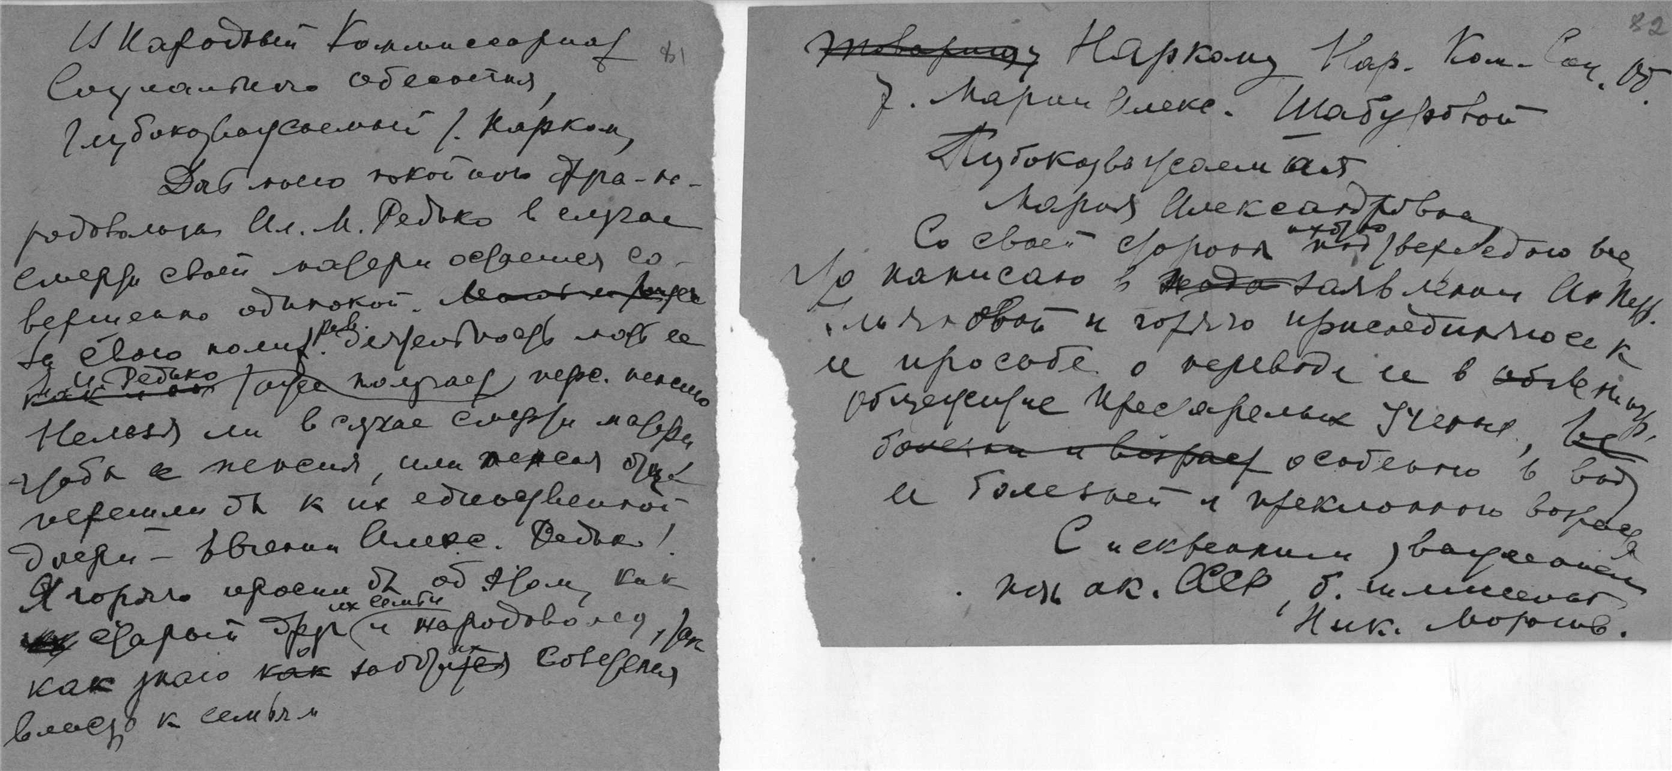 81
В Народный Комиссариат
Социального обеспечения,
Глубокоуважаемый т. Нарком,
Дочь моего покойного друга-на-
родовольца Ал. М. Редько в случае
смерти своей матери остается со-
вершенно одинокой.
За свою полит. рев. деятельность мать ее
Редько тоже получает перс. пенсию
Нельзя ли в случае смерти матери
чтобы ее пенсия, или пенсия отца
перешли бы к их единственной
дочери — Евгении Алекс. Редько!
Я горячо просил бы об этом, как
старый друг их семьи и народоволец, так
как знаю как заботится Советская
власть к семьям
82
товарищу Наркому Нар. Ком. Соц. Об.
т. Марии Алекс. Шабуровой
Глубокоуважаемая
Мария Александровна
Со своей стороны подтверждаю все
что написано в заявлении Ан.
и горячо присоединяюсь к
ее просьбе о переводе ее в
общежитие престарелых ученых,
болезни и возраст особенно в виду
ее болезней и преклонного возраста
С искренним уважением
поч. ак. СССР, б. шлиссельб.
Ник. Морозов.